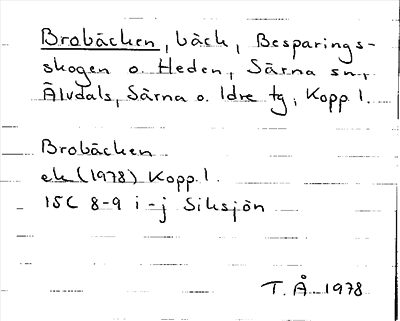 Brobäcken, bäck, Besparings-
skogen o. Heden, Särna sn,
Älvdals, Särna o. Idre tg, Kopp l.
Brobäcken
ek (1978) Kopp l.
15C 8-9 i-j Siksjön
T. Å 1978